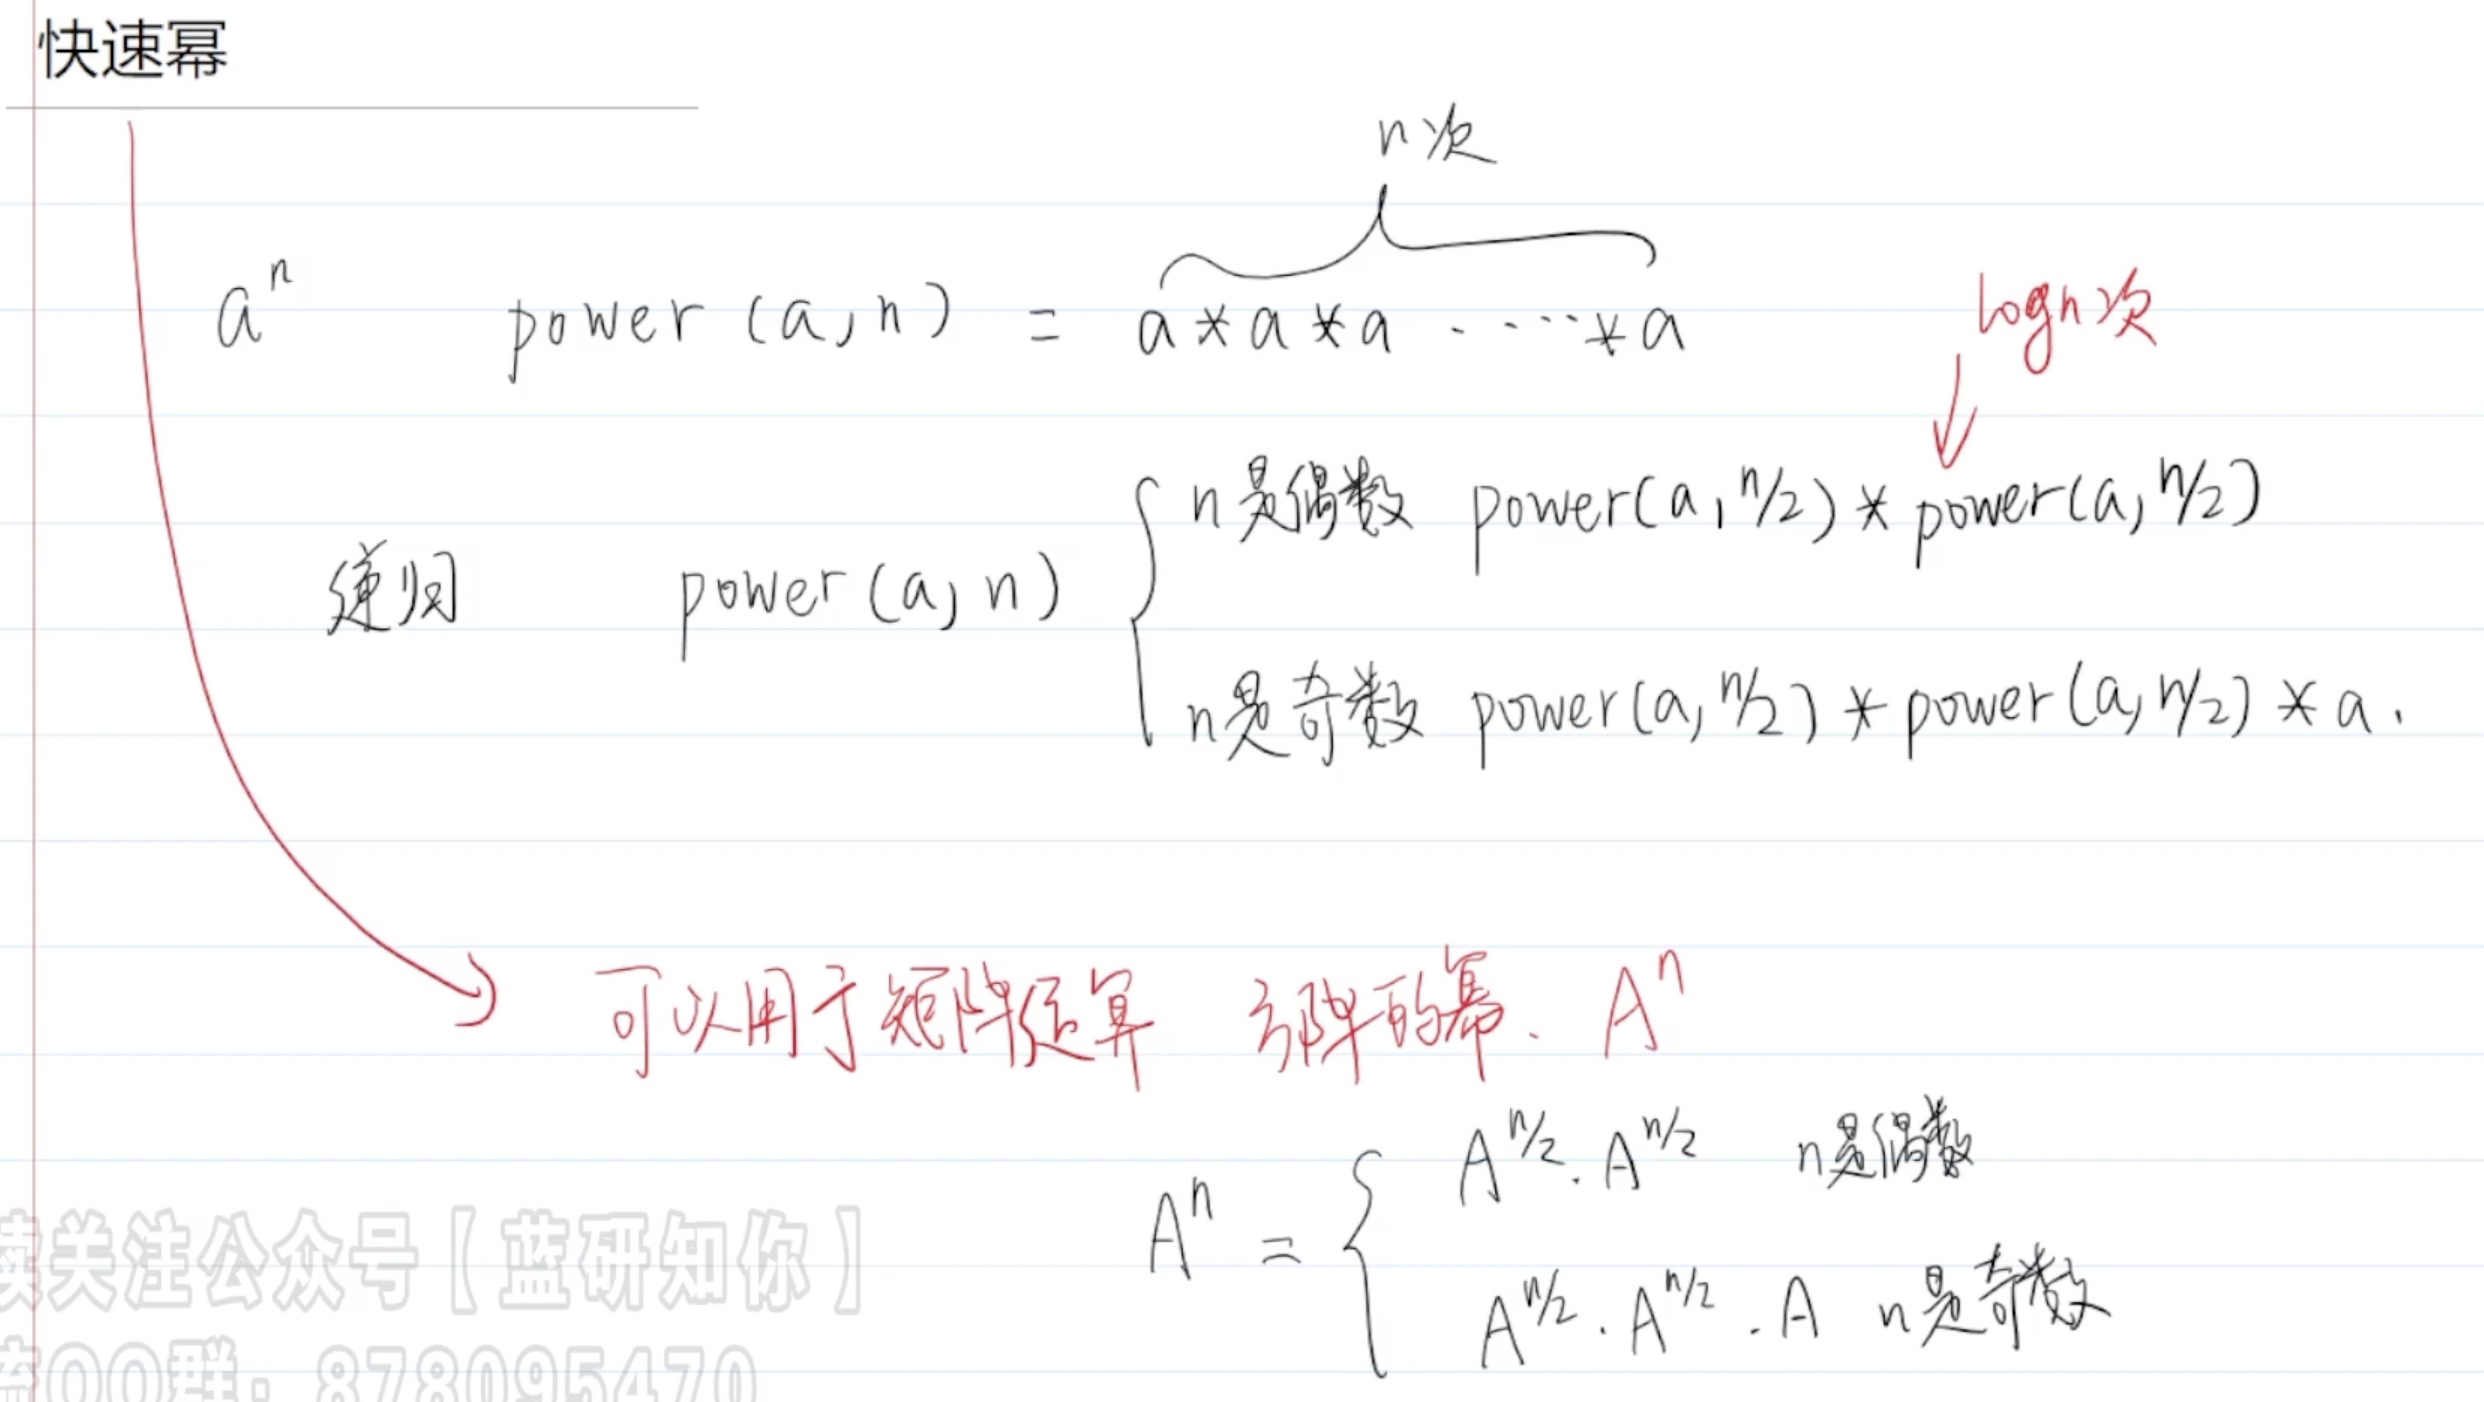 快速幂
n次
aⁿ power(a,n) = a*a*a·····*a
logn次
n是偶数 power(a,n/2)*power(a,n/2)
递归 power(a,n)
n是奇数 power(a,n/2)*power(a,n/2)*a.
可以用于矩阵运算 方阵的幂. Aⁿ
A^n/2 · A^n/2 n是偶数
Aⁿ =
A^n/2 · A^n/2 · A n是奇数
关注公众号【蓝研知你】
QQ群: 878095470